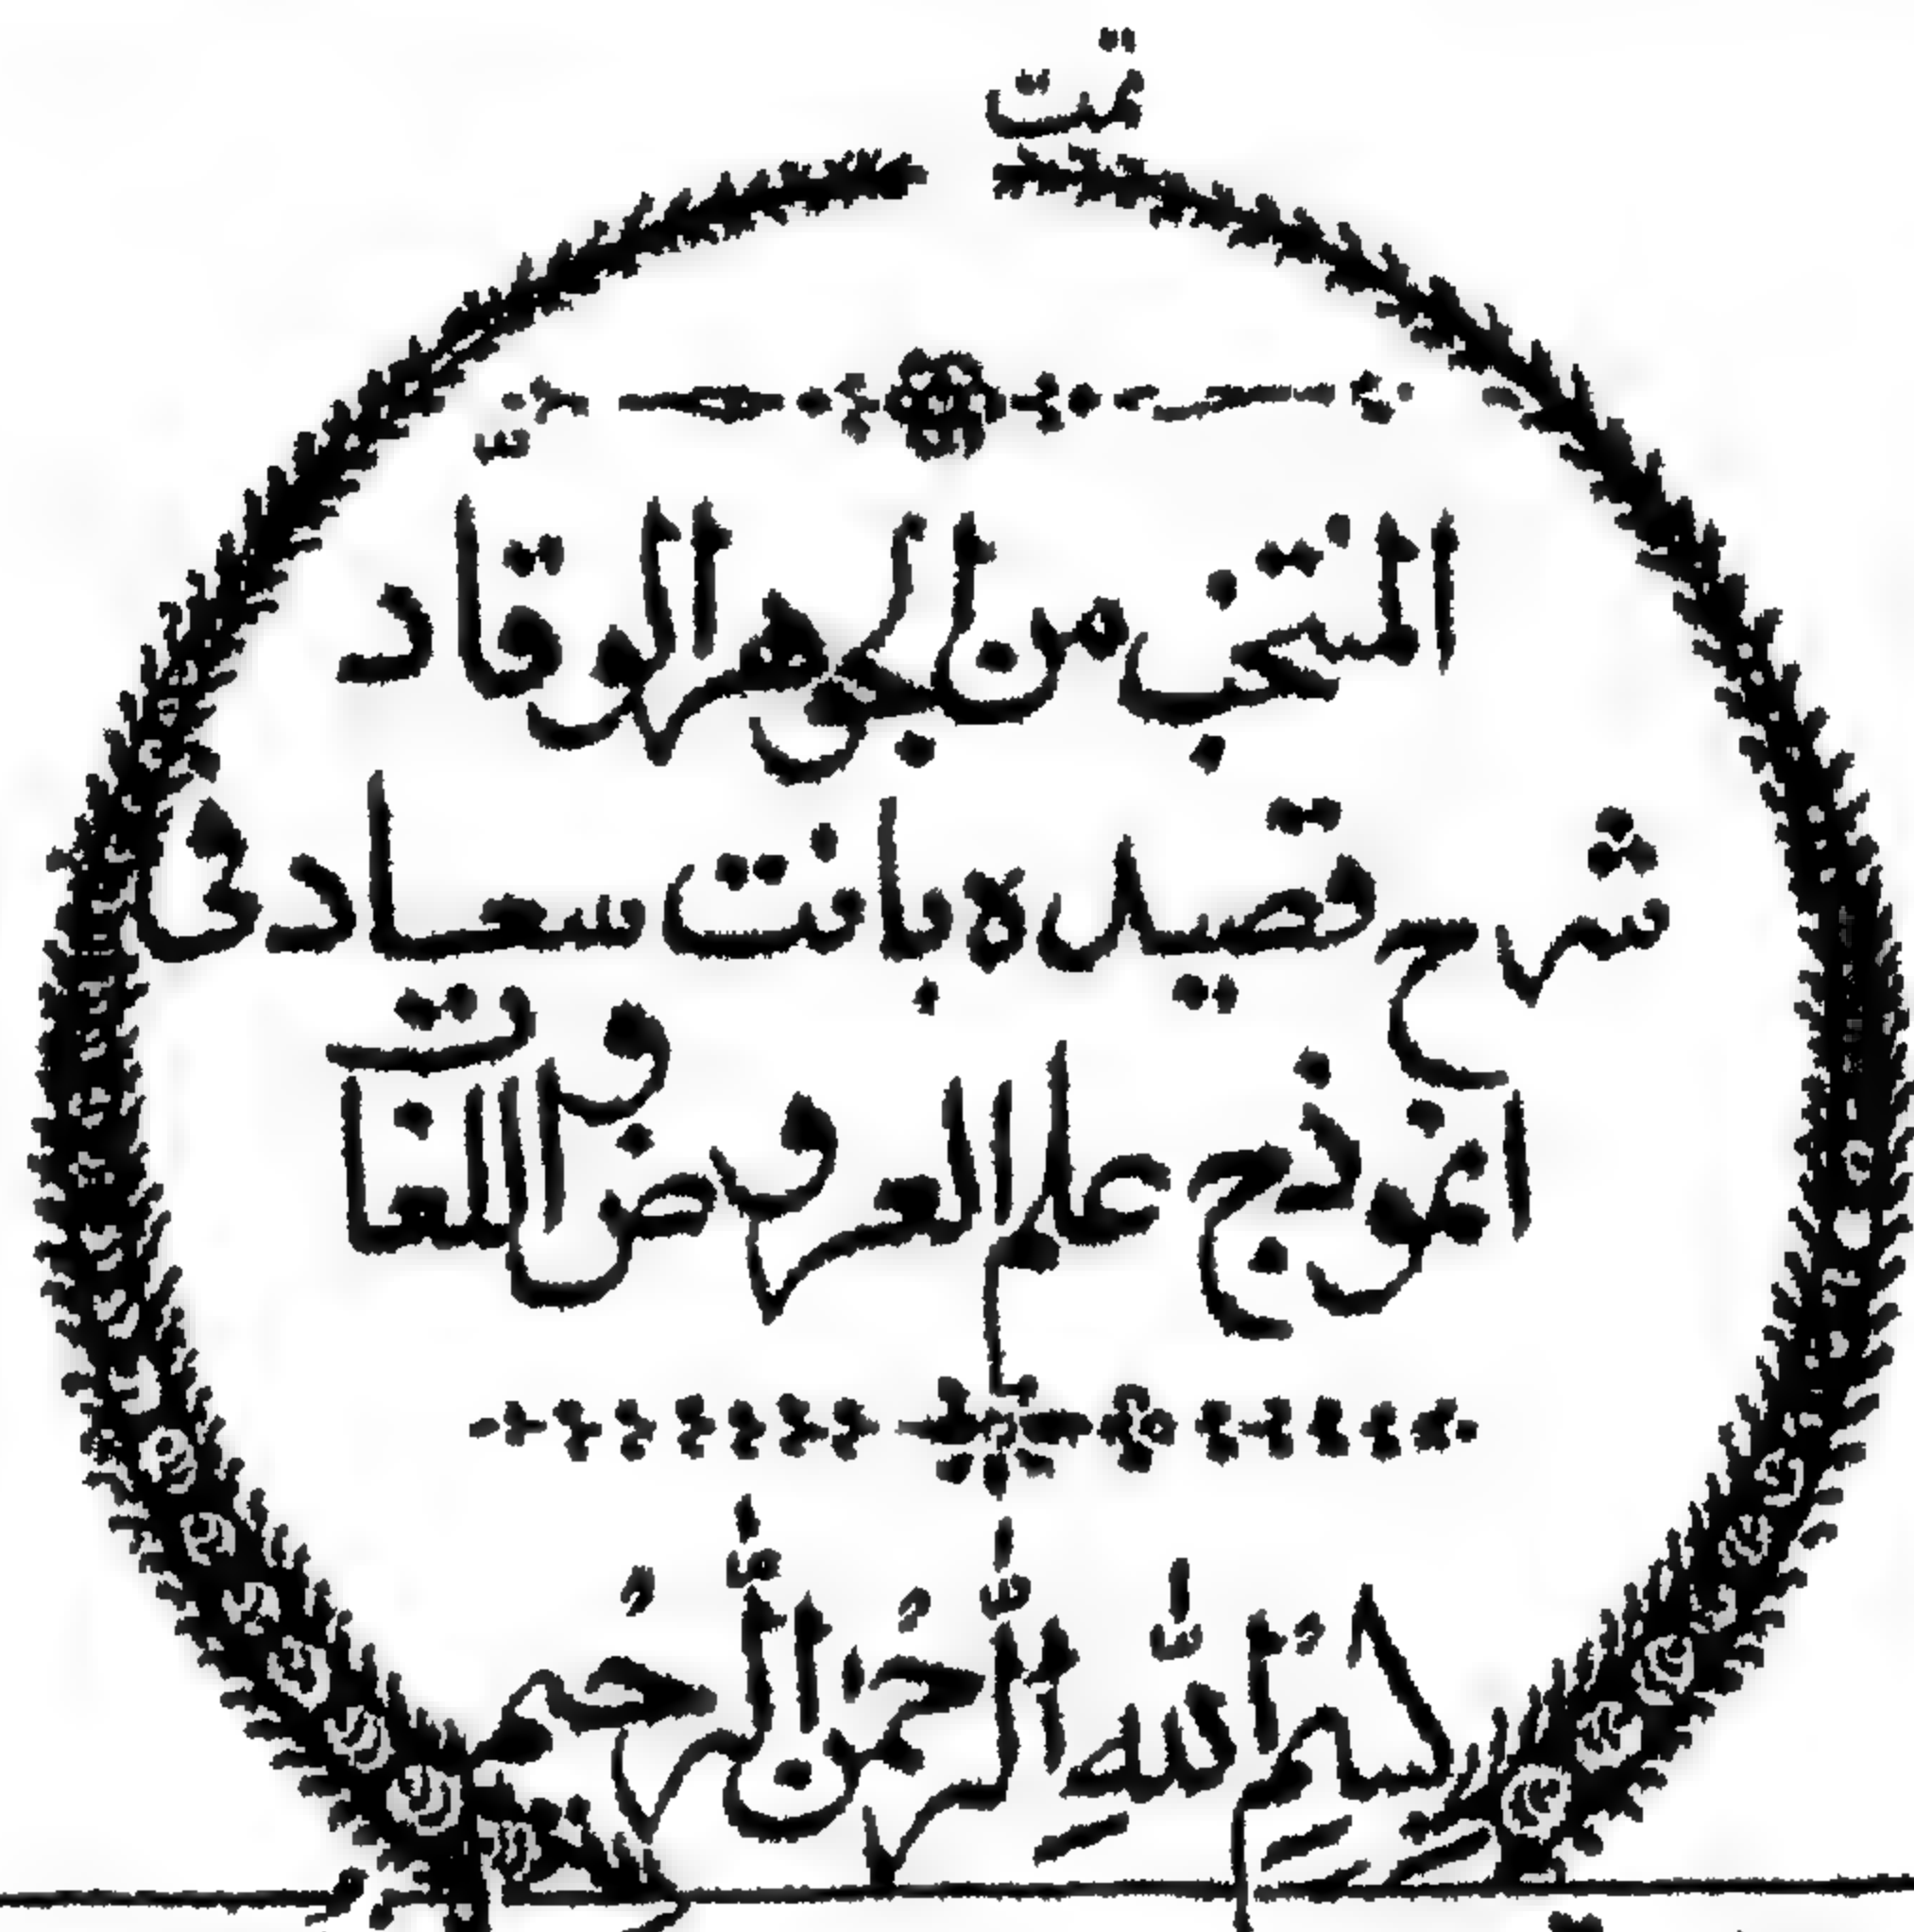 تمت
المنتخب من الجوهر الوقاد
شرح قصيده بانت سعاد فى
انموذج علم العروض واللغات
بسم الله الرحمن الرحيم